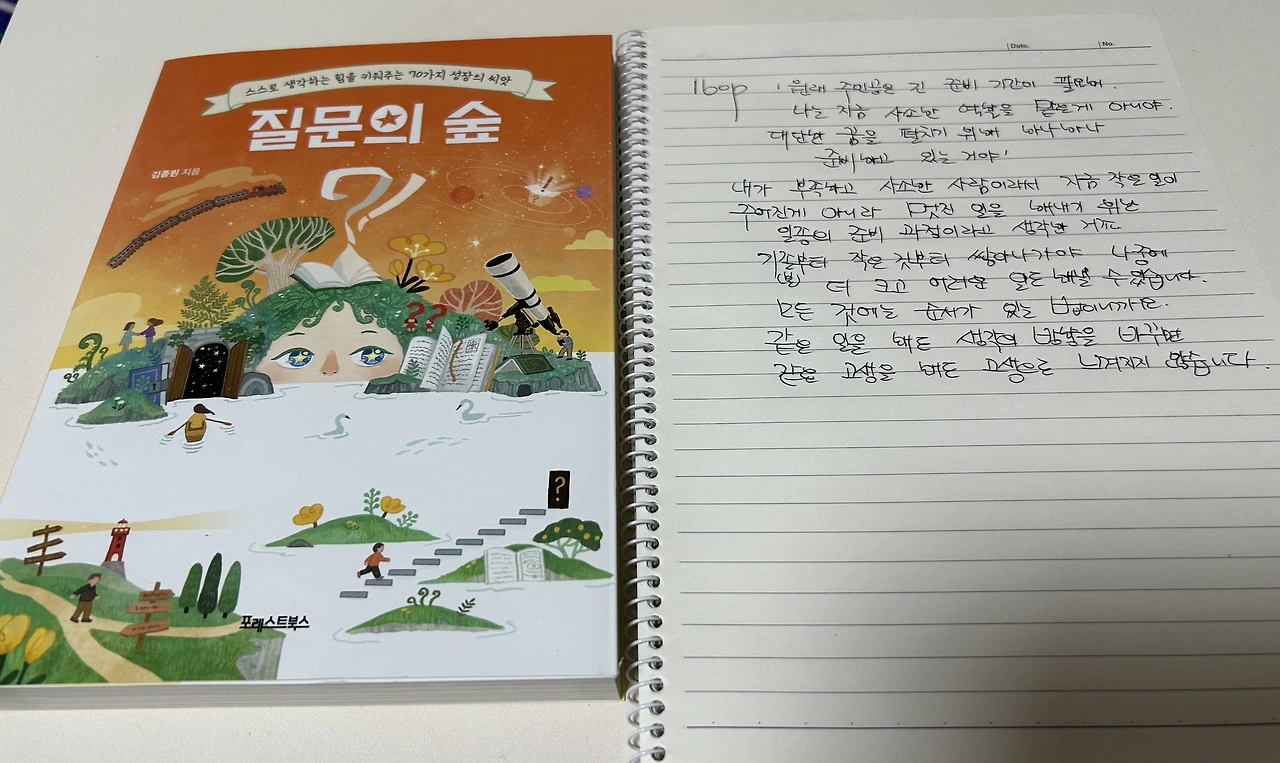 스스로 생각하는 힘을 키워주는 70가지 성장의 씨앗
질문의 숲
김종원 지음
포레스트북스
Date.
No.
160p '원래 주인공은 긴 준비 기간이 필요해.
나는 지금 사소한 역할을 맡은게 아니야.
대단한 꿈을 펼치기 위해 하나하나
준비하고 있는 거야'
내가 부족하고 사소한 사람이라서 지금 작은 일이
주어진게 아니라 멋진 일을 해내기 위한
일종의 준비 과정이라고 생각한 거죠
기초부터 작은 것부터 쌓아나가야 나중에
더 크고 어려운 일도 해낼 수 있습니다.
모든 것에는 순서가 있는 법이니까요.
같은 일을 해도 생각의 방향을 바꾸면
같은 고생을 해도 고생으로 느껴지지 않습니다.